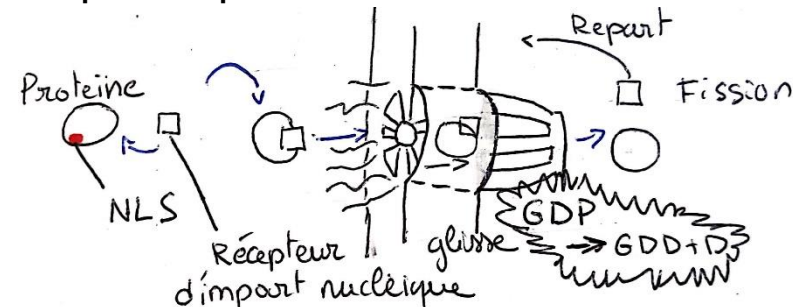 Repart
Proteine
Fission
NLS
Récepteur
d'import nucléique
glisse
GDP
→ GDD + D